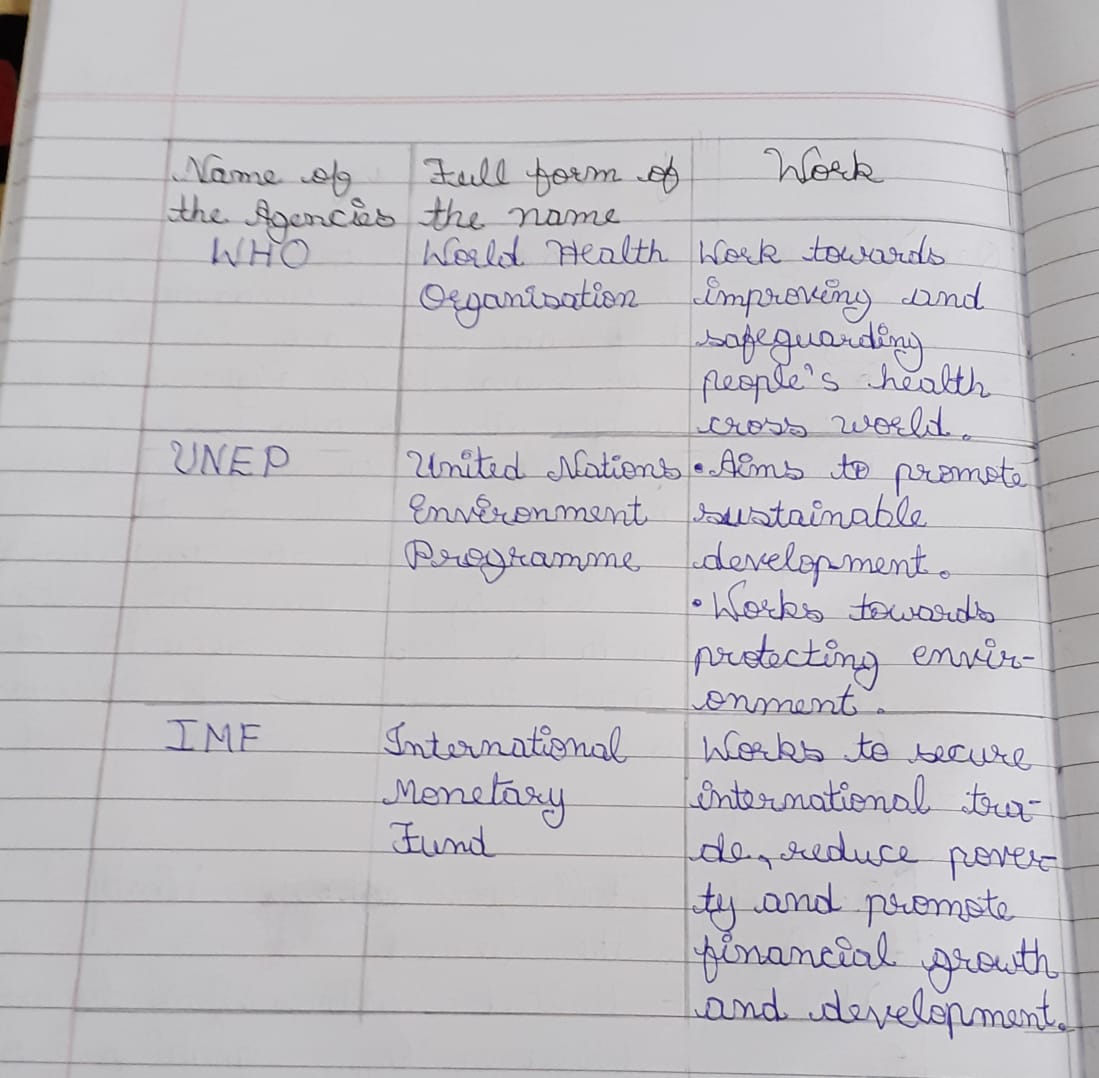 Name of the Agencies
Full form of the name
Work
WHO
World Health
Organisation
Work towards
improving and
safeguarding
people's health
cross world.
UNEP
United Nations
Environment
Programme
• Aims to promote
sustainable
development.
• Works towards
protecting envir-
onment.
IMF
International
Monetary
Fund
Works to secure
international tra-
de, reduce pover-
ty and promote
financial growth
and development.